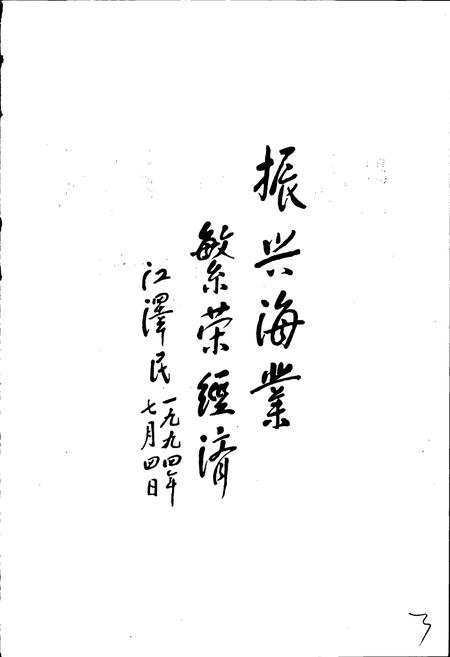 振兴海業
繁荣經济
江澤民
一九九四年
七月四日
3